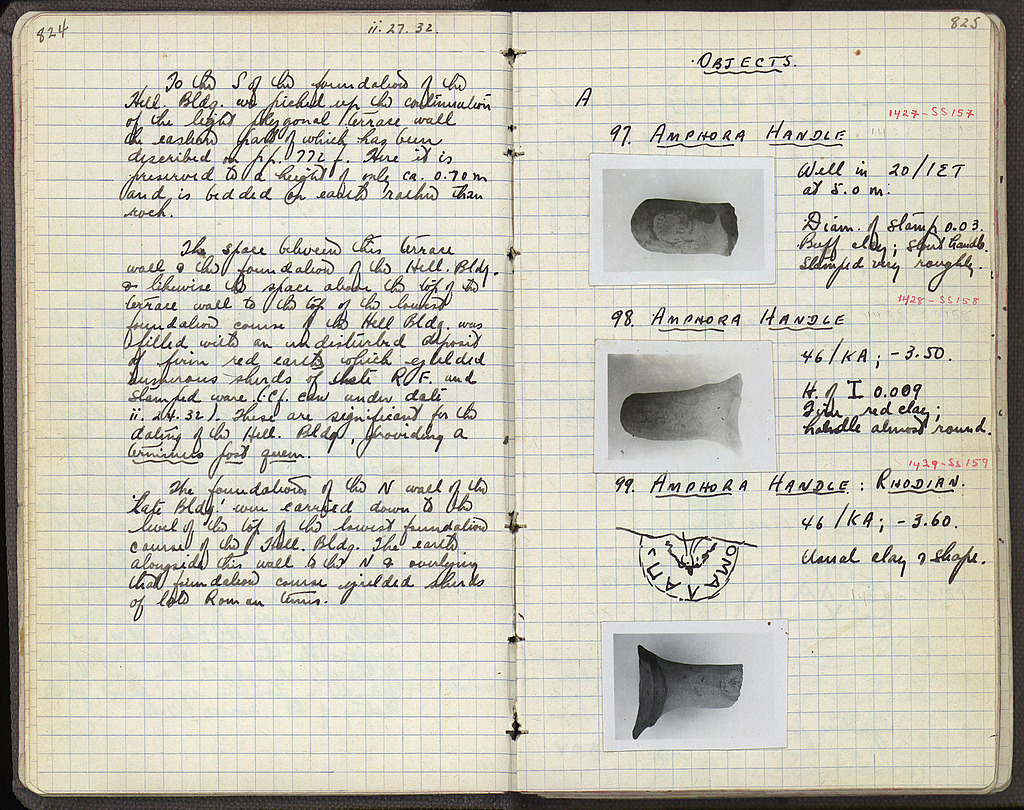 824
ii. 27. 32.
To the S of the foundation of the
Hell. Bldg. we picked up the continuation
of the light polygonal terrace wall
the eastern part of which has been
described on pp. 772 f. Here it is
preserved to a height of only ca. 0.70 m
and is bedded on earth rather than
rock.
The space between this terrace
wall & the foundation of the Hell. Bldg.
& likewise the space above the top of the
terrace wall to the top of the lowest
foundation course of the Hell Bldg. was
filled with an undisturbed deposit
of firm red earth which yielded
numerous sherds of late R.F. and
stamped ware (cf. can under date
ii. 24. 32). These are significant for the
dating of the Hell. Bldg, providing a
terminus post quem.
The foundations of the N wall of the
'Late Bldg.' were carried down to the
level of the top of the lowest foundation
course of the Hell. Bldg. The earth
alongside this wall to the N & overlying
that foundation course yielded sherds
of late Roman times.
825
OBJECTS.
A
1427-SS157
97. AMPHORA HANDLE
Well in 20/ΙΣΤ
at 5.0 m.
Diam. of stamp 0.03.
Buff clay; stout handle
Stamped very roughly.
1428-SS158
98. AMPHORA HANDLE
46/KA; -3.50.
H. of I 0.009
Fine red clay;
handle almost round.
1429-SS159
99. AMPHORA HANDLE: RHODIAN.
46/KA; -3.60.
Usual clay & shape.